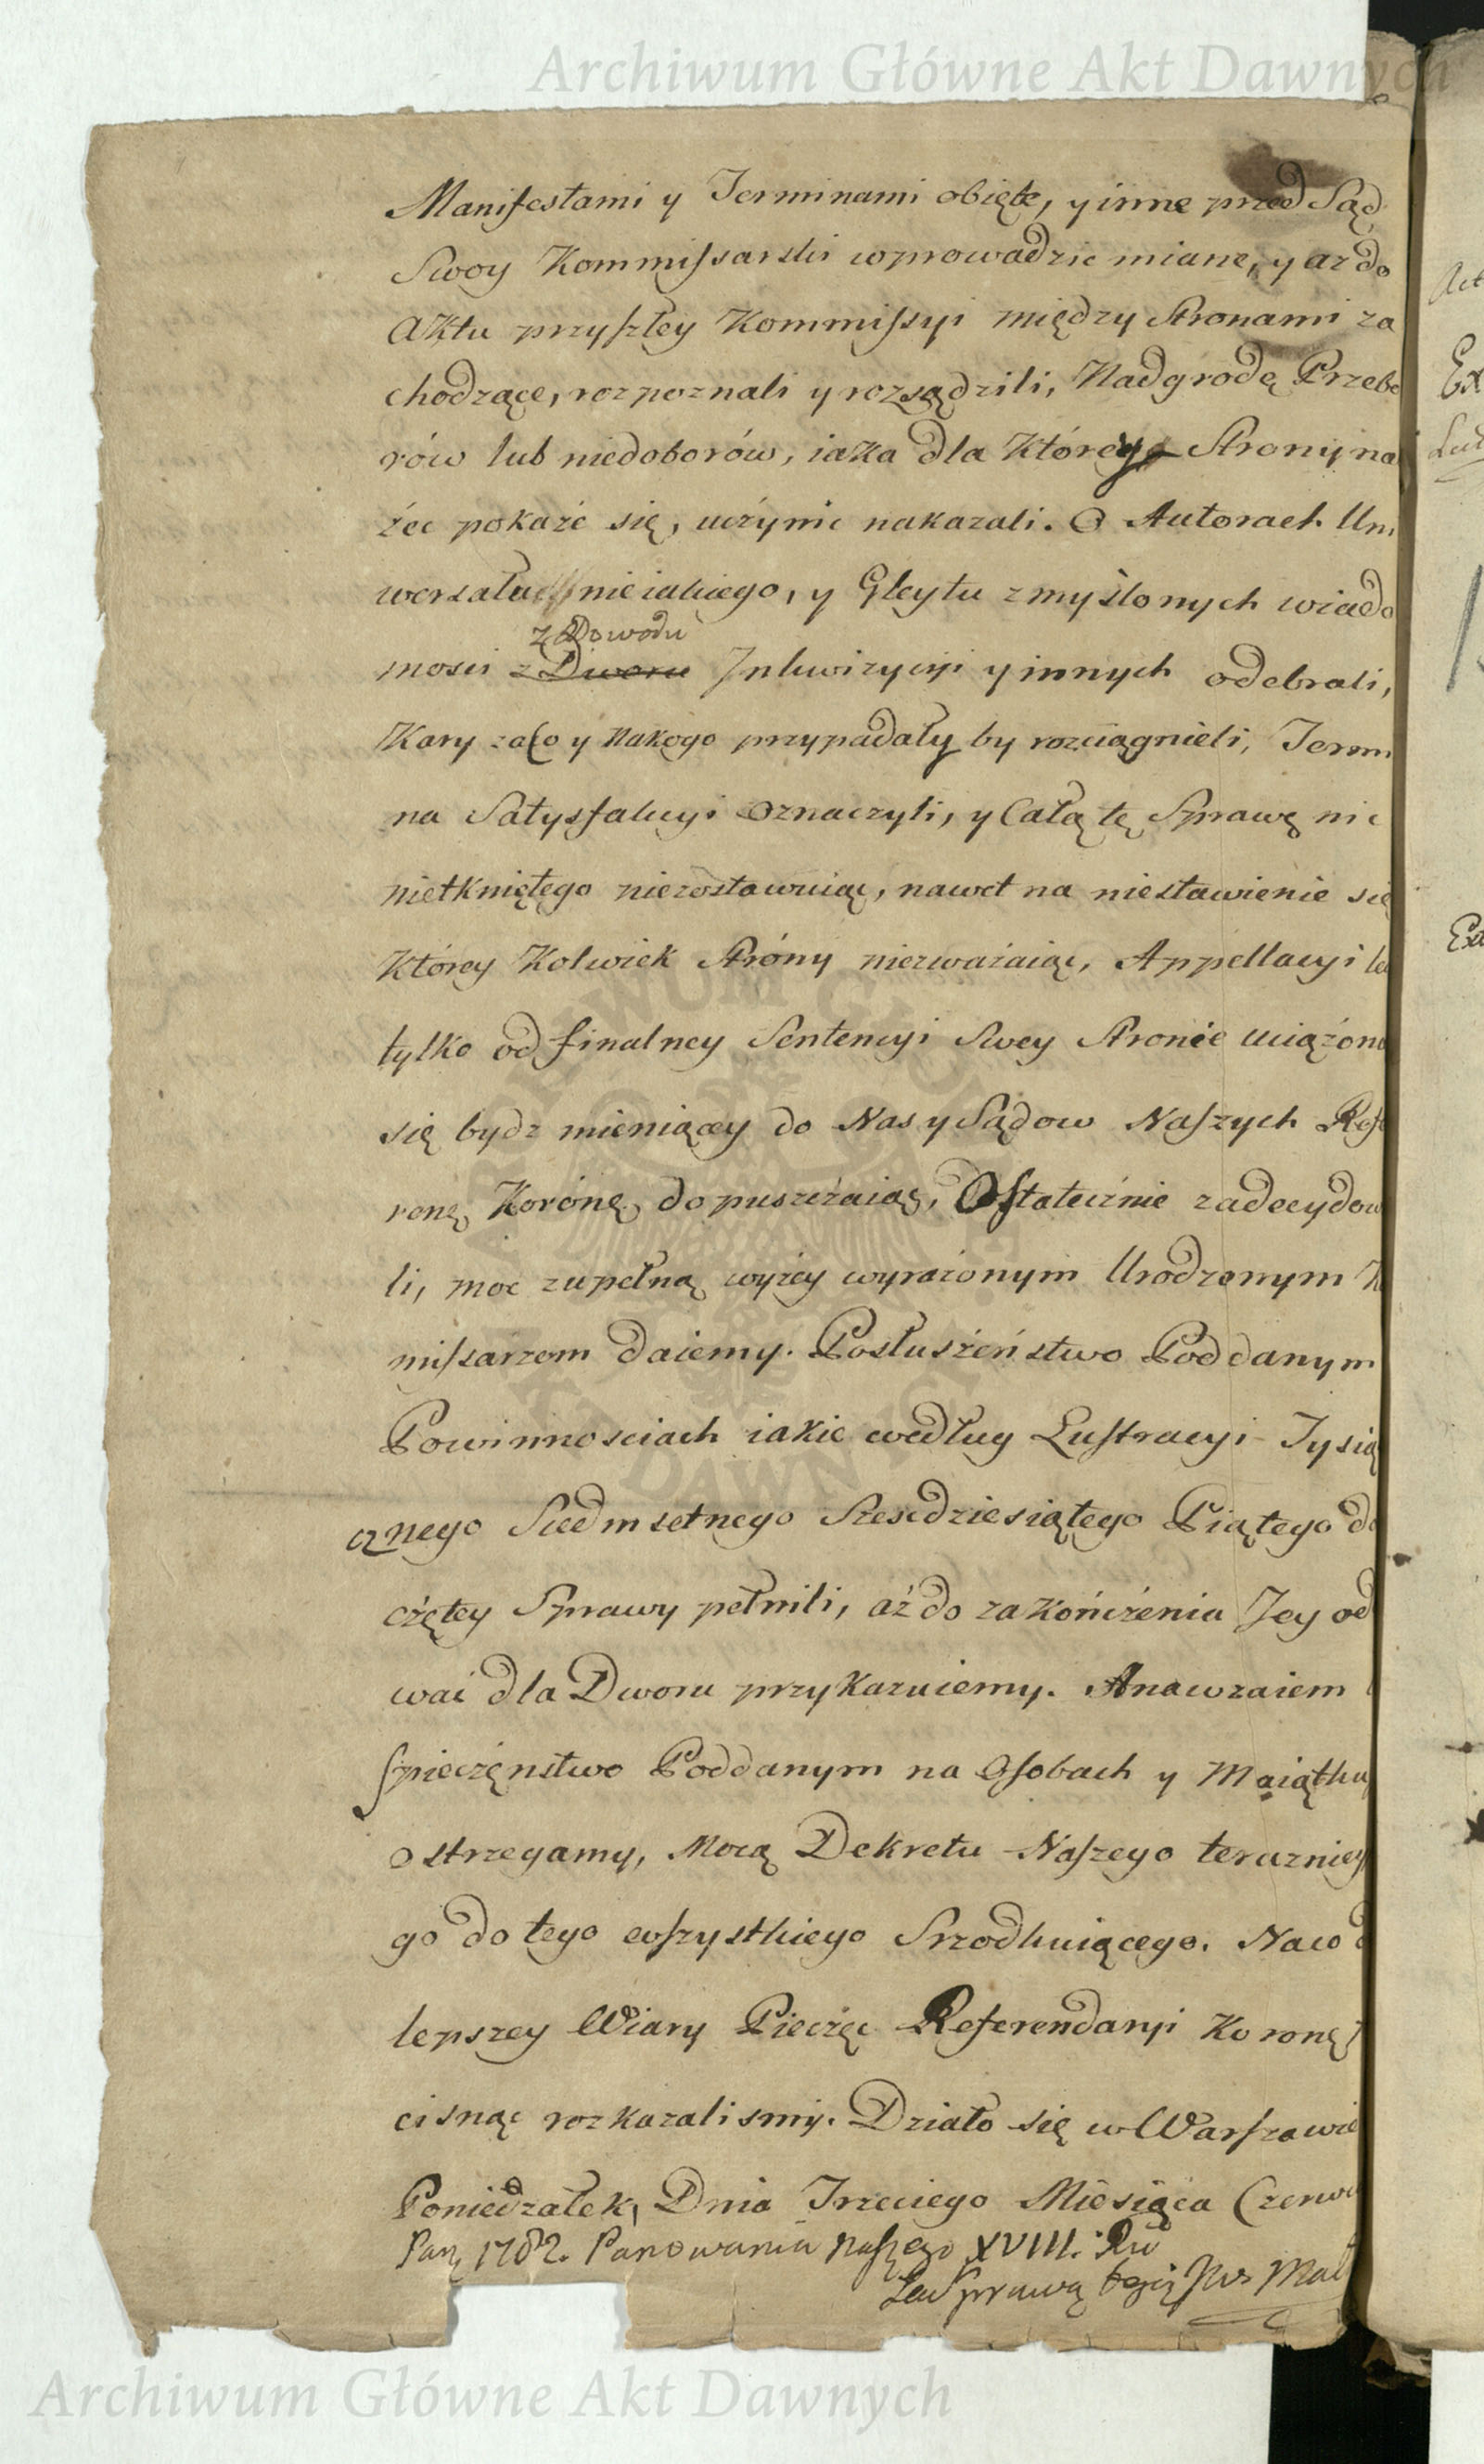 Archiwum Główne Akt Dawnych
Manifestami y Terminami obięte, y inne przed Sąd
Swoy Kommissarski wprowadzic miane, y aż do
Aktu przyszłey Kommissyi między Stronami za
chodzące, rozpoznali y rozsądzili, Nadgrodę Przebo
rów lub niedoborów, iaka dla którey Strony na
żec pokaże się, uczynic nakazali. O Autorach Uni
wersału nieiakiego, y Gleytu zmyślonych wiado
z Dowodu
mosci z Dworu Inkwizycyi y innych odebrali,
Kary za co y na kogo przypadały by rozciągnieli, Termi
na Satysfakcyi oznaczyli, y Całą tę Sprawę nic
nietkniętego niezostawuiąc, nawet na niestawienie się
którey kolwiek Stróny niezważaiąc, Appellacyi
tylko od finalney Sentencyi Swey Stronie uciążoną
się bydz mieniącey do Nas y Sądow Naszych Refe
ronę Koronę dopuszczaiąc, Ostatecznie zadecydowa
li, moc zupełną wyżey wyrażonym Urodzonym
missarzom daiemy. Posłuszeństwo Poddanym
Powinnosciach iakie według Lustracyi Tysią
cznego Siedmsetnego Szescdziesiątego Piątego do
czętey Sprawy pełnili, aż do zakończenia Jey od
wac dla Dworu przykazuiemy. A nawzaiem
spieczęnstwo Poddanym na Osobach y Maiątku
ostrzegamy, Mocą Dekretu Naszego teraznieysz
go do tego wszystkiego Srzodkuiącego. Na co
lepszey Wiary Pieczęc Referendaryi Koronę
cisnąc rozkazalismy. Działo się w Warszawie
Poniedzałek, Dnia Trzeciego Miesiąca Czerwc
Pań 1782. Panowania naszego XVIII. Ru
Archiwum Główne Akt Dawnych